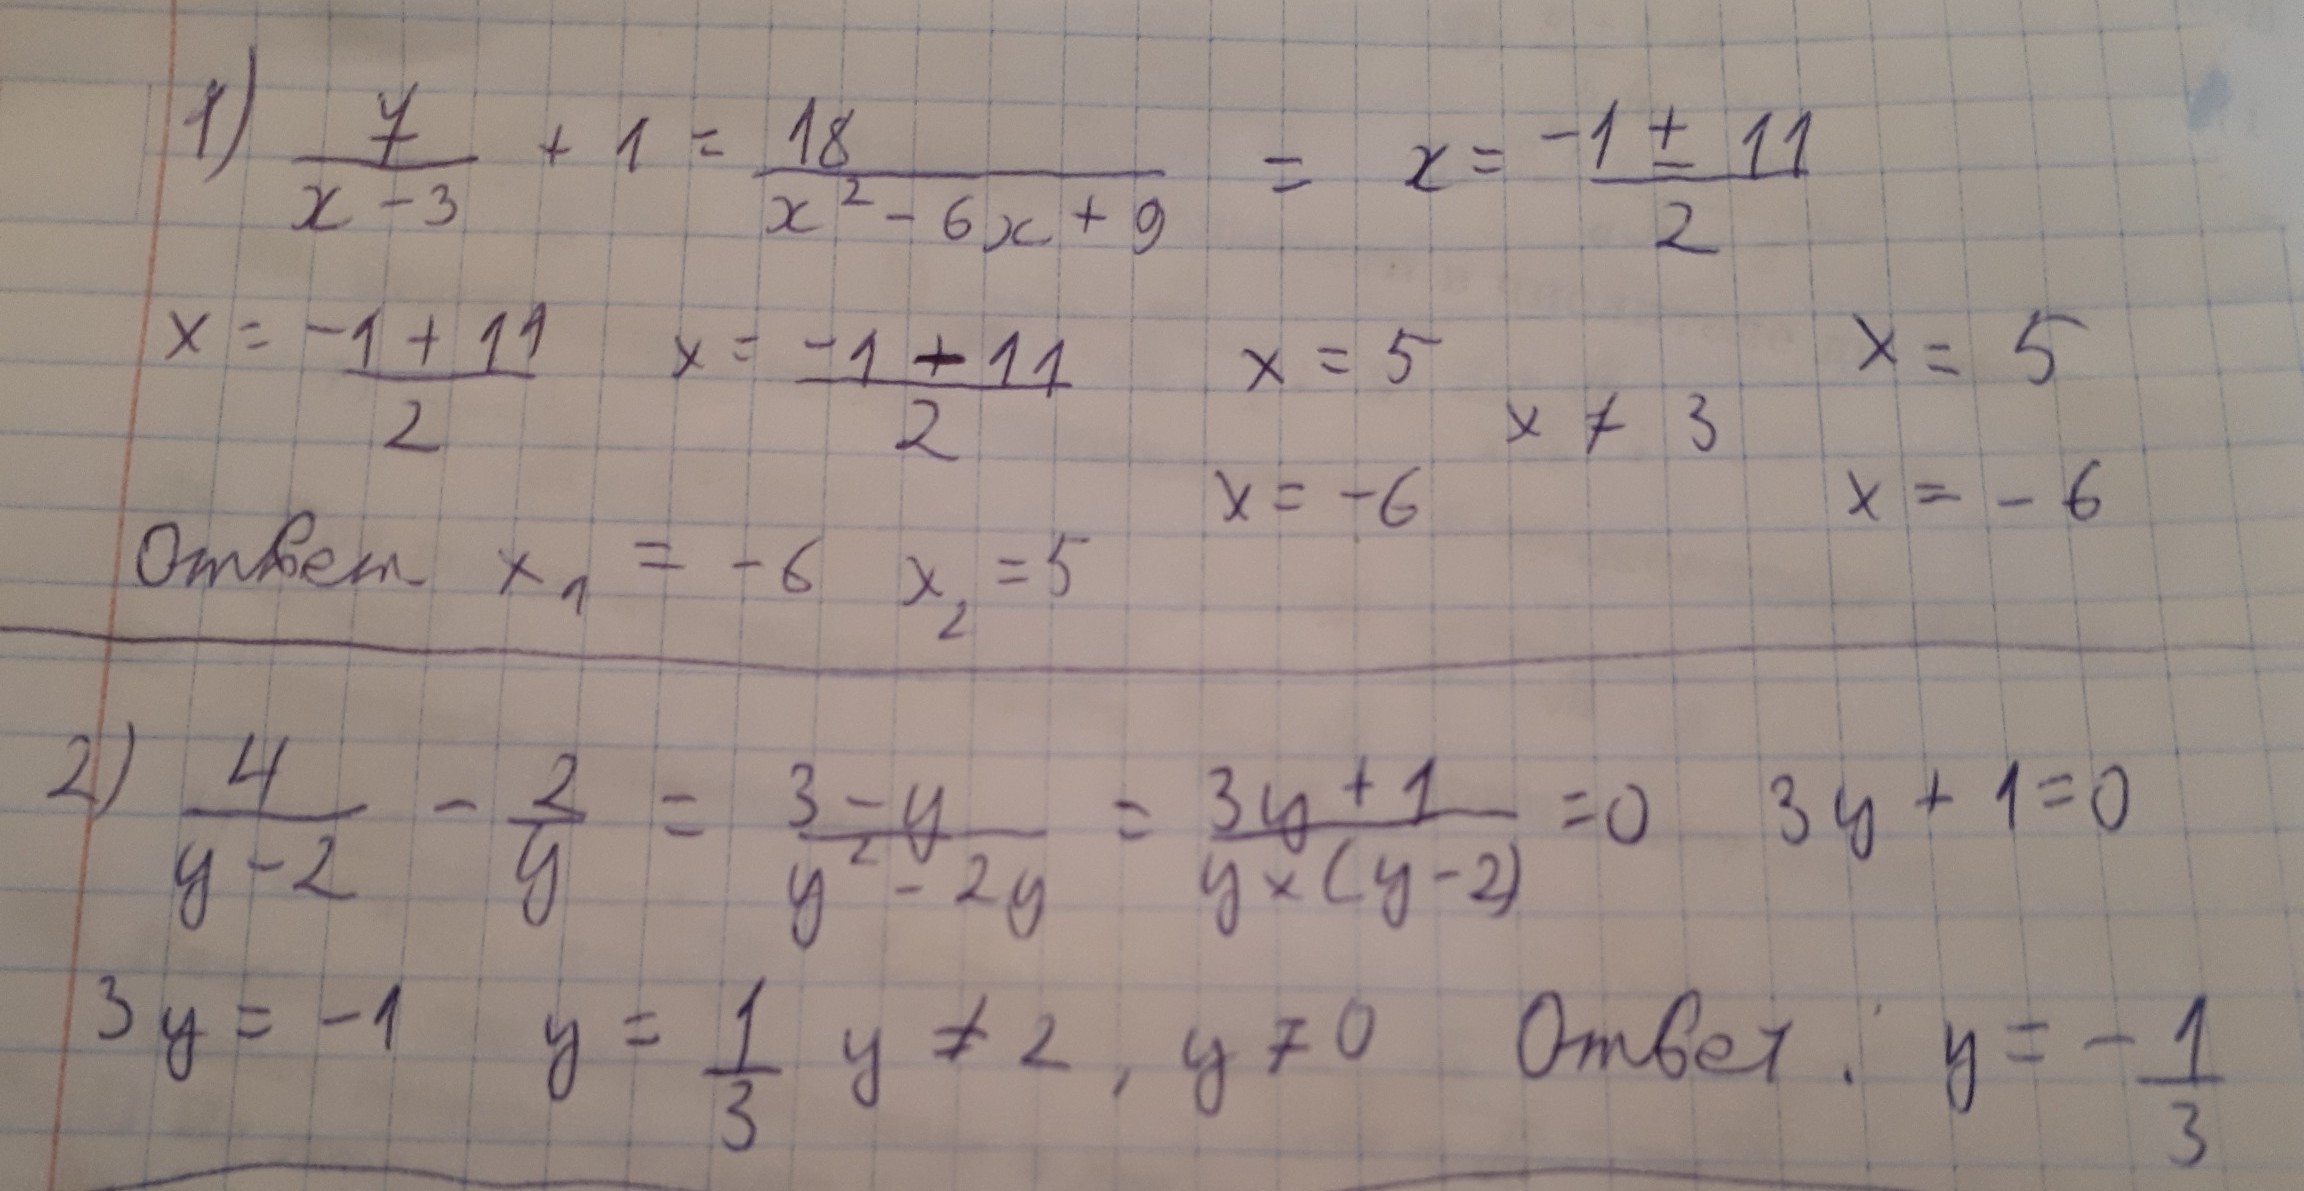 1) 7/(x-3) + 1 = 18/(x²-6x+9) = x = (-1±11)/2
x = (-1+11)/2 x = (-1-11)/2 x = 5 x ≠ 3 x = 5
x = -6 x = -6
Ответ x₁ = -6 x₂ = 5
2) 4/(y-2) - 2/y = (3-y)/(y²-2y) = (3y+1)/(y×(y-2)) =0 3y+1=0
3y = -1 y = 1/3 y ≠ 2, y ≠ 0 Ответ: y = -1/3